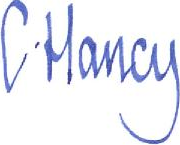 C. Hancy